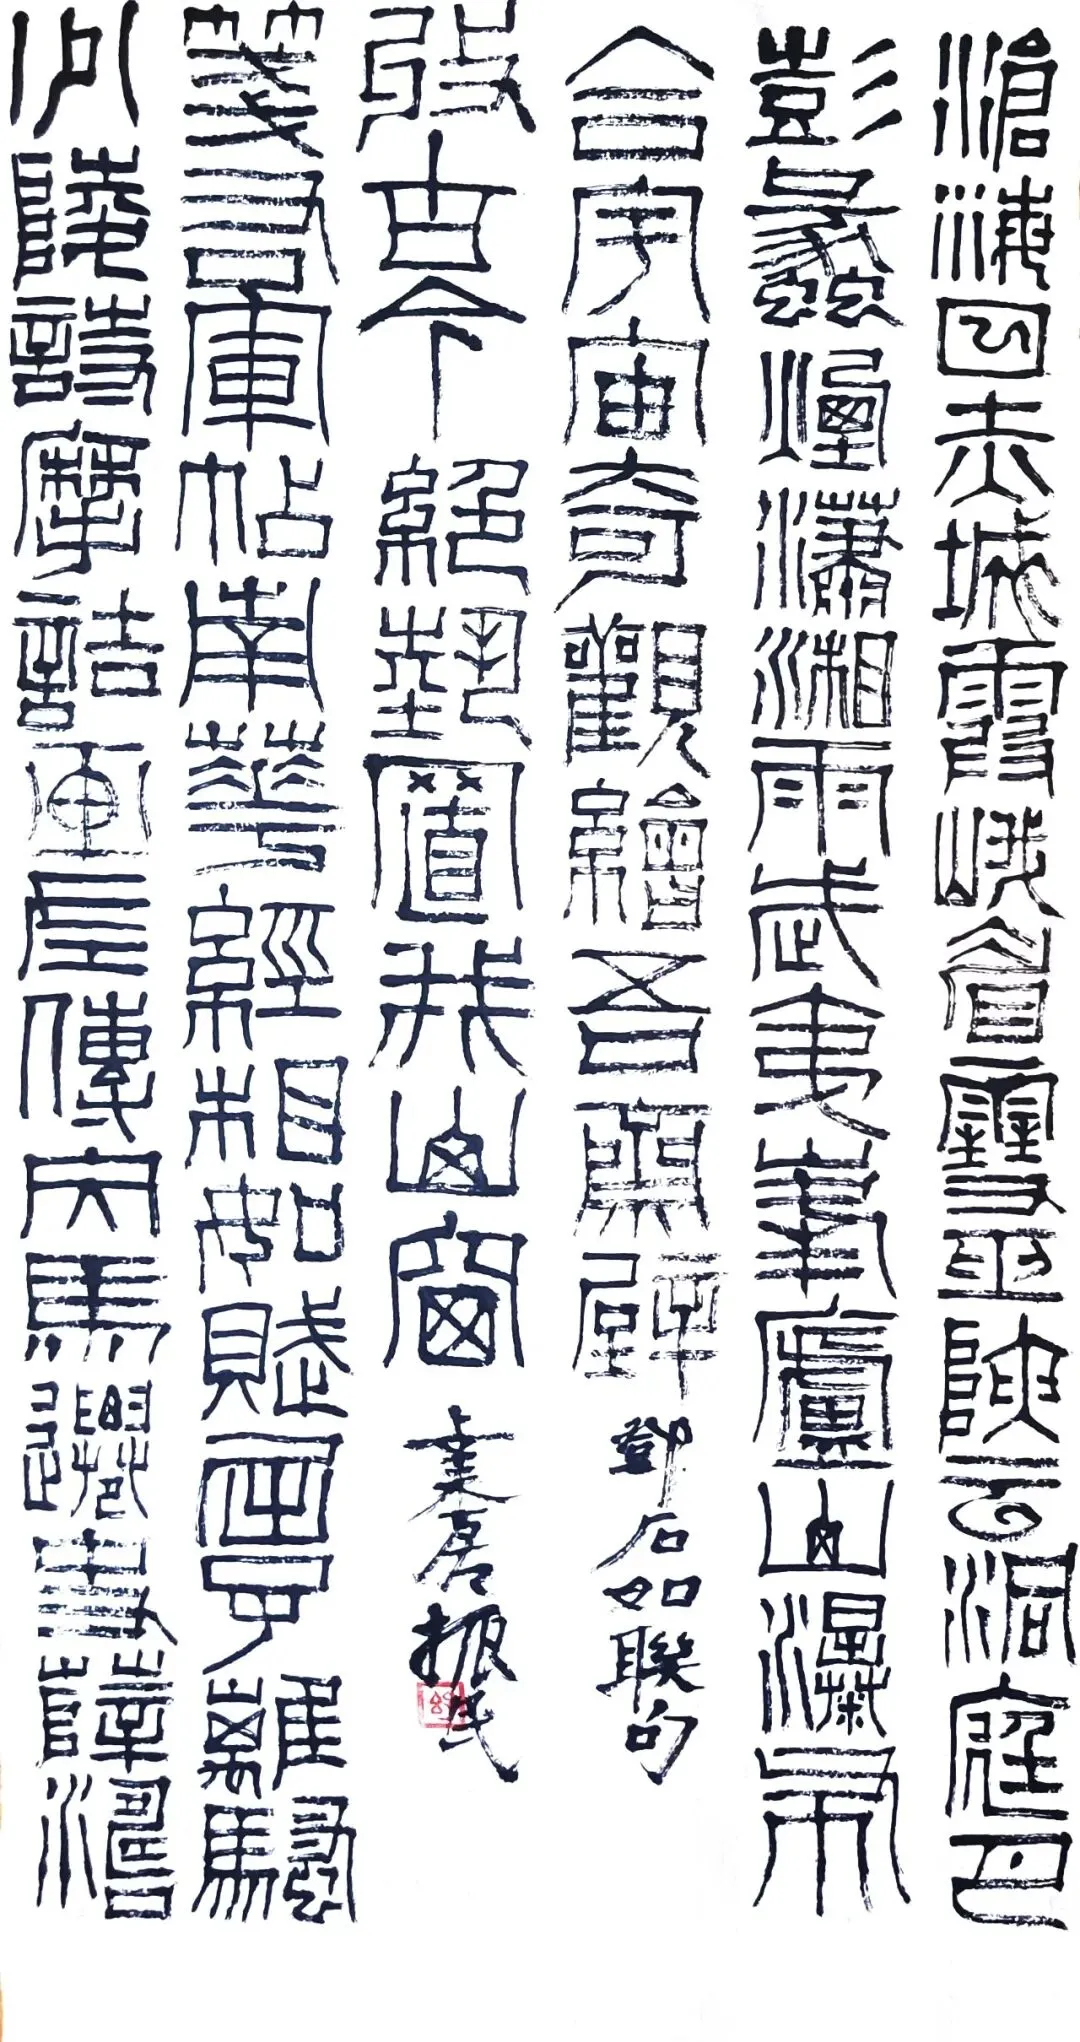 滄海日赤城霞峨眉雪巫陜云洞庭月
彭蠡煙瀟湘雨武夷峯廬山瀑布
合宇宙奇觀繪吾齋壁
鄧石如聯句
少陵詩摩詰畫左傳文馬遷史薛濤
箋右軍帖南華經相如賦屈子離騷
收古今絕藝置我山窗
振民